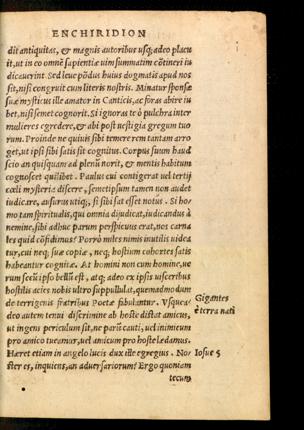 ENCHIRIDION
dit antiquitas, & magnis autoribus usq; adeo placu
it, ut in eo omnẽ sapientiæ uim summatim cõtineri iu
dicauerint. Sed leue põdus huius dogmatis apud nos
sit, nisi congruit cum literis nostris. Minatur sponsæ
suæ mysticus ille amator in Canticis, ac foras abire iu
bet, nisi semet cognorit. Si ignoras te ò pulchra inter
mulieres egredere, & abi post uestigia gregum tuo
rum. Proinde ne quiuis sibi temere rem tantam arro
get, ut ipsi sibi satis sit cognitus. Corpus suum haud
scio an quisquam ad plenũ norit, & mentis habitum
cognoscet quilibet. Paulus cui contigerat uel tertij
cœli mysteria discere, semetipsum tamen non audet
iudicare, ausurus utiq;, si sibi sat esset notus. Si ho
mo tam spiritualis, qui omnia dijudicat, iudicandus à
nemine, sibi adhuc parum perspicuus erat, nos carna
les quid cõfidimus? Porrò miles nimis inutilis uidea
tur, cui neq; suæ copiæ, neq; hostium cohortes satis
habeantur cognitæ. At homini non cum homine, ue
rum secũ ipso bellũ est, atq; adeo ex ipsis uisceribus
hostilis acies nobis ultro suppullulat, quemadmodum
de terrigenis fratribus Poetæ fabulantur. Vsq;ua
deo autem tenui discrimine ab hoste distat amicus,
ut ingens periculum sit, ne parũ cauti, uel inimicum
pro amico tueamur, uel amicum pro hoste lædamus.
Hæret etiam in angelo lucis dux ille egregius. Nos
ster es, inquiens, an aduersariorum? Ergo quoniam
tecum
Gigantes
è terra nati
Iosue 5